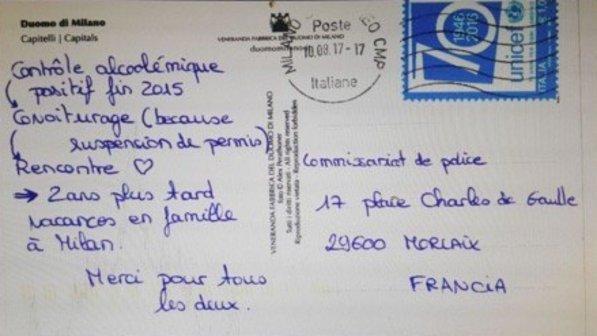 Duomo di Milano
Capitelli | Capitals
Contrôle alcoolémique
positif fin 2015
Covoiturage (because
suspension de permis)
Rencontre ♡
⇒ 2 ans plus tard
vacances en famille
à Milan.
Merci pour tous
les deux.
VENERANDA FABBRICA DEL DUOMO DI MILANO
duomomilano
VENERANDA FABBRICA DEL DUOMO DI MILANO
Tutti i diritti riservati - All rights reserved
Riproduzione vietata - Reproduction forbidden
MILANO
CMP
Poste
10.08.17-17
Italiane
70
1946
2016
unicef
ITALIA
Commissariat de police
17 place Charles de Gaulle
29600 MORLAIX
FRANCIA